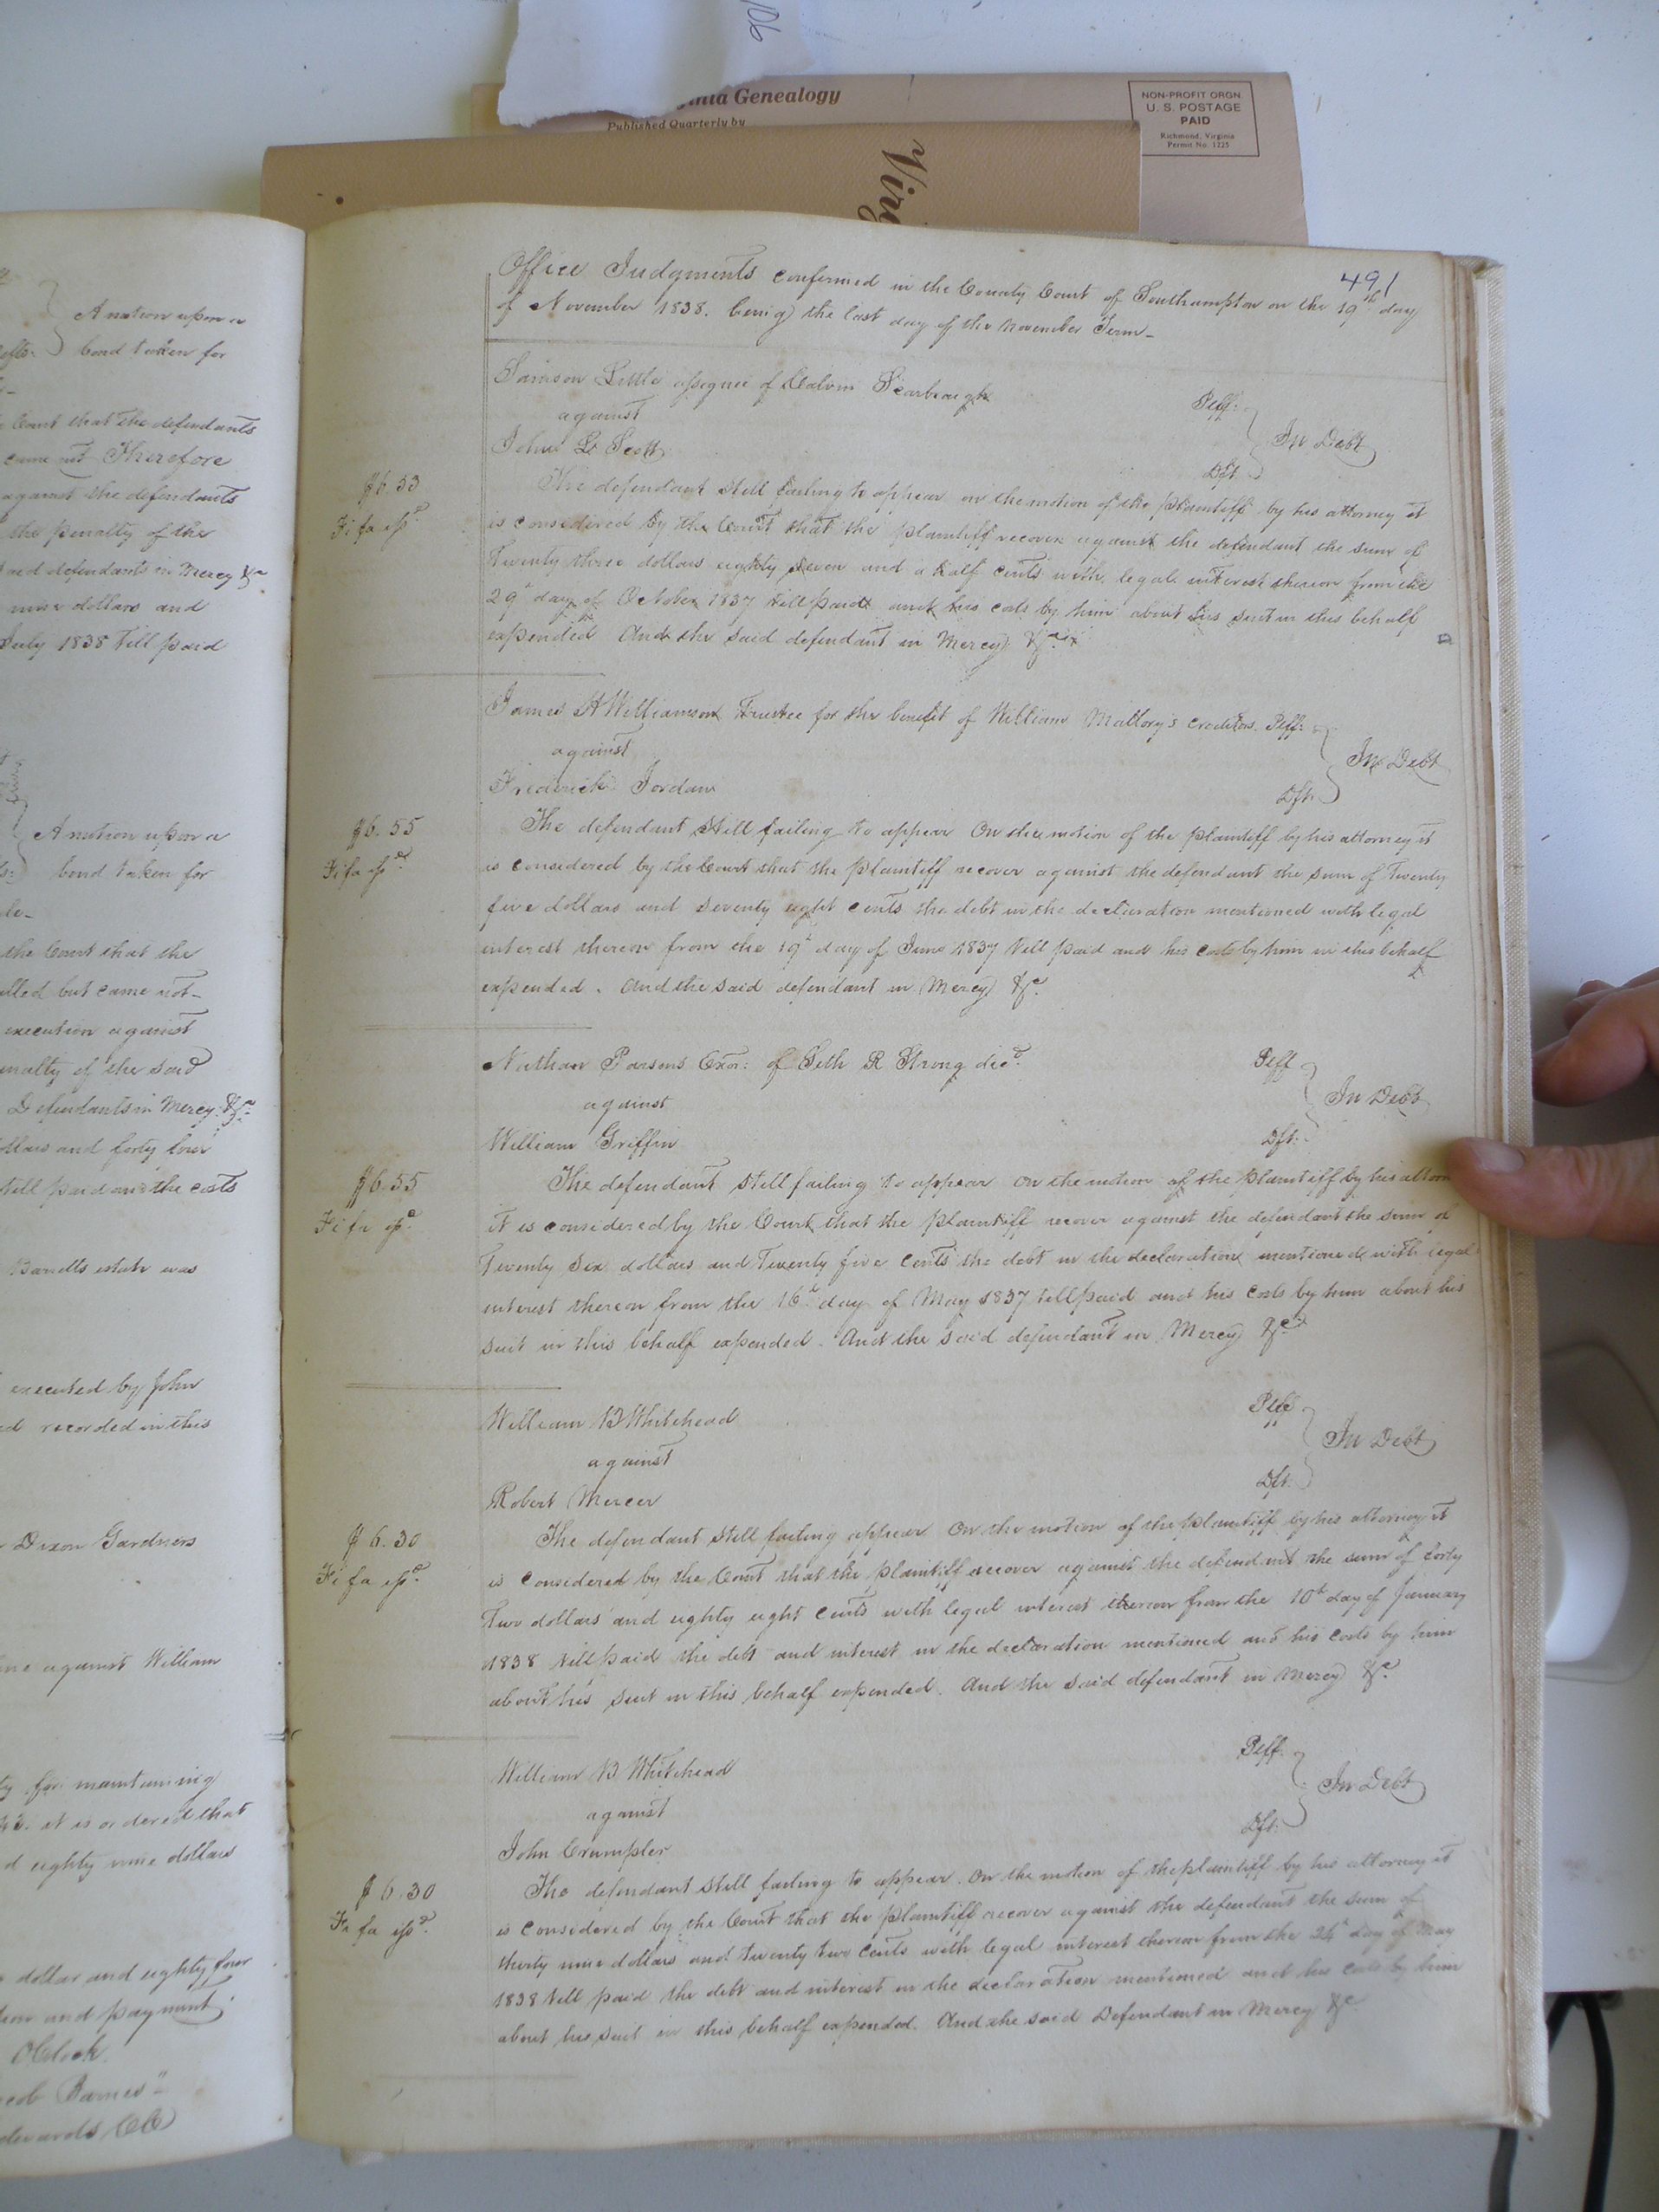 106
Virginia Genealogy
Published Quarterly by
NON-PROFIT ORGN.
U. S. POSTAGE
PAID
Richmond, Virginia
Permit No. 1225
Virg
A motion upon a
bond taken for
Court that the defendants
came not Therefore
against the defendants
the penalty of the
said defendants in Mercy &c
nine dollars and
July 1838 till paid
A motion upon a
bond taken for
the Court that the
called but came not-
execution against
penalty of the said
Defendants in Mercy &c
dollars and forty four
till paid and the costs
Barretts estate was
executed by John
recorded in this
Dixon Gardners
against William
for maintaining
it is ordered that
eighty nine dollars
dollar and eighty four
and payment
OClock
Jacob Barnes"
Edwards CC
491
Office Judgments confirmed in the County Court of Southampton on the 19th day
of November 1838. being the last day of the November Term-
Samson Little assignee of Calvin Scarbrough Plff.
against
In Debt
John L Scott Dft
$6.53
Fi fa issd
The defendant still failing to appear on the motion of the plaintiff by his attorney it
is considered by the Court that the plaintiff recover against the defendant the sum of
Twenty three dollars eighty seven and a half cents with legal interest thereon from the
29th day of October 1837 till paid and his costs by him about his suit in this behalf
expended And the said defendant in Mercy &c.
James A Williamson Trustee for the benefit of William Mallory's creditors Plff.
against
In Debt
Frederick Jordan Dft.
$6.55
Fi fa issd
The defendant still failing to appear On the motion of the plaintiff by his attorney it
is considered by the Court that the plaintiff recover against the defendant the sum of Twenty
five dollars and seventy eight cents the debt in the declaration mentioned with legal
interest thereon from the 19th day of June 1837 till paid and his costs by him in this behalf
expended. And the said defendant in Mercy &c.
Nathan Parsons Exor. of Seth R Strong decd. Plff
against
In Debt
William Griffin Dft.
$6.55
Fi fa issd
The defendant still failing to appear on the motion of the plaintiff by his attorn
it is considered by the Court that the plaintiff recover against the defendant the sum of
Twenty six dollars and Twenty five cents the debt in the declaration mentioned with legal
interest thereon from the 16th day of May 1837 till paid and his costs by him about his
suit in this behalf expended. And the said defendant in Mercy &c.
William B Whitehead Plff
against
In Debt
Robert Mercer Dft.
$6.30
Fi fa issd.
The defendant still failing appear On the motion of the plaintiff by his attorney it
is considered by the Court that the plaintiff recover against the defendant the sum of forty
two dollars and eighty eight cents with legal interest thereon from the 10th day of January
1838 till paid the debt and interest in the declaration mentioned and his costs by him
about his suit in this behalf expended. And the said defendant in Mercy &c.
William B Whitehead Plff.
against
In Debt
John Crumpler Dft.
$6.30
Fi fa issd.
The defendant still failing to appear. On the motion of the plaintiff by his attorney it
is considered by the Court that the plaintiff recover against the defendant the sum of
thirty nine dollars and twenty two cents with legal interest thereon from the 24th day of May
1838 till paid the debt and interest in the declaration mentioned and his costs by him
about his suit in this behalf expended. And the said Defendant in Mercy &c